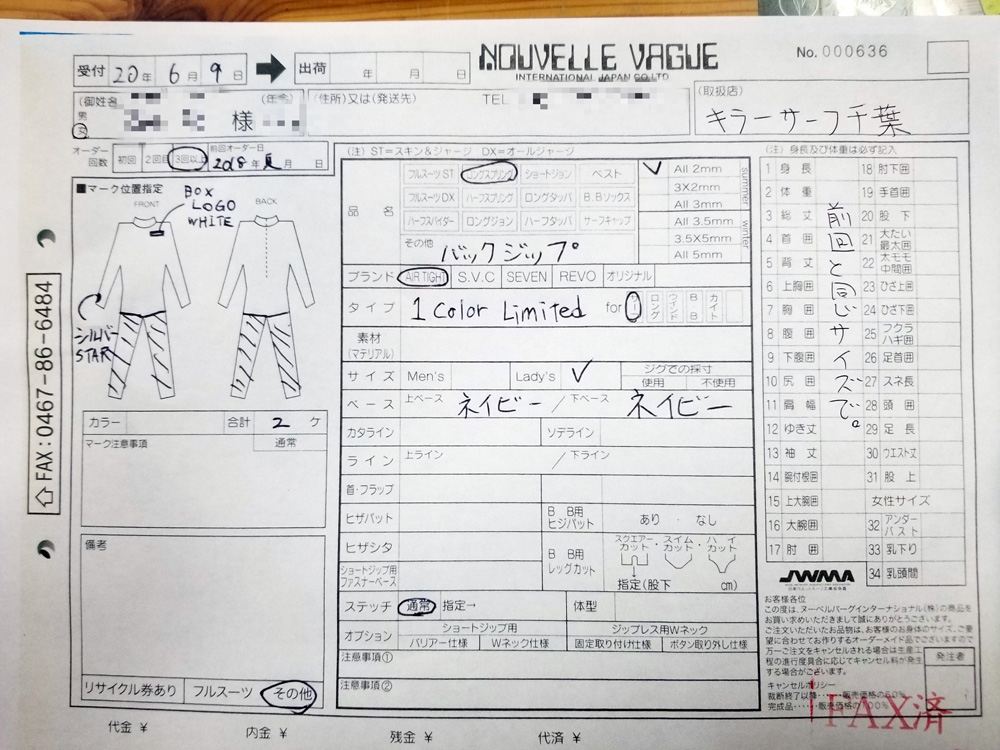 NOUVELLE VAGUE
INTERNATIONAL JAPAN CO.,LTD
No. 000636
受付 20年 6月 9日 出荷 年 月 日
(御姓名 (年令)
男 女
様
(住所)又は(発送先) TEL
(取扱店)
キラーサーフ千葉
オーダー回数 初回 2回目 3回以上 前回オーダー日 2018年 夏月 日
■マーク位置指定
FRONT BACK
BOX
LOGO
WHITE
シルバー
STAR
カラー 合計 2 ケ
マーク注意事項 通常
備考
リサイクル券あり フルスーツ その他
⇧FAX:0467-86-6484
(注) ST=スキン&ジャージ DX=オールジャージ
品名
フルスーツST ロングスプリング ショートジョン ベスト
フルスーツDX ハーフスプリング ロングタッパ B.Bソックス
ハーフスパイダー ロングジョン ハーフタッパ サーフキャップ
その他 バックジップ
✓ All 2mm
3X2mm
All 3mm
All 3.5mm
3.5X5mm
All 5mm
summer
winter
ブランド AIR TIGHT S.V.C SEVEN REVO オリジナル
タイプ 1 Color Limited for サーフ ロング ウインド BB カイト
素材
(マテリアル)
サイズ Men's Lady's ✓ ジグでの採寸
使用 不使用
ベース 上ベース ネイビー / 下ベース ネイビー
カタライン ソデライン
ライン 上ライン / 下ライン
首・フラップ
ヒザパット B B用ヒジパット あり ・ なし
ヒザシタ B B用レッグカット スクエアーカット・ スイムカット・ ハイカット
ショートジップ用ファスナーベース 指定(股下 cm)
ステッチ 通常 指定→ 体型
オプション ショートジップ用 ジップレス用Wネック
バリアー仕様 Wネック仕様 固定取り付け仕様 ボタン取り外し仕様
注意事項①
注意事項②
(注) 身長及び体重は必ず記入
1 身長 18 肘下囲
2 体重 19 手首囲
3 総丈 20 股下
4 首囲 21 太たい最太囲
5 背丈 22 太モモ中間囲
6 上胸囲 23 ひざ上囲
7 胸囲 24 ひざ下囲
8 腹囲 25 フクラハギ囲
9 下腹囲 26 足首囲
10 尻囲 27 スネ長
11 肩幅 28 頭囲
12 ゆき丈 29 足長
13 袖丈 30 ウエスト丈
14 腕付根囲 31 股上
15 上大腕囲 女性サイズ
16 大腕囲 32 アンダーバスト
17 肘囲 33 乳下り
34 乳頭間
前回と同じサイズで。
JWMA
お客様各位
この度は、ヌーベルバーグインターナショナル(株)の商品を
お買い求めいただきまして誠にありがとうございます。
ご注文いただいたお品物は、お客様のお身体のサイズ、ご要
望に合わせてお作りするオーダーメイド品でございますので
万一ご注文をキャンセルされる場合は生産工
程の進行度具合に応じてキャンセル料が発生
する場合がございます。
キャンセルポリシー
裁断終了以降・・・・・販売価格の50%
完成品・・・・・販売価格の100%
発注者
FAX済
代金 ¥ 内金 ¥ 残金 ¥ 代済 ¥